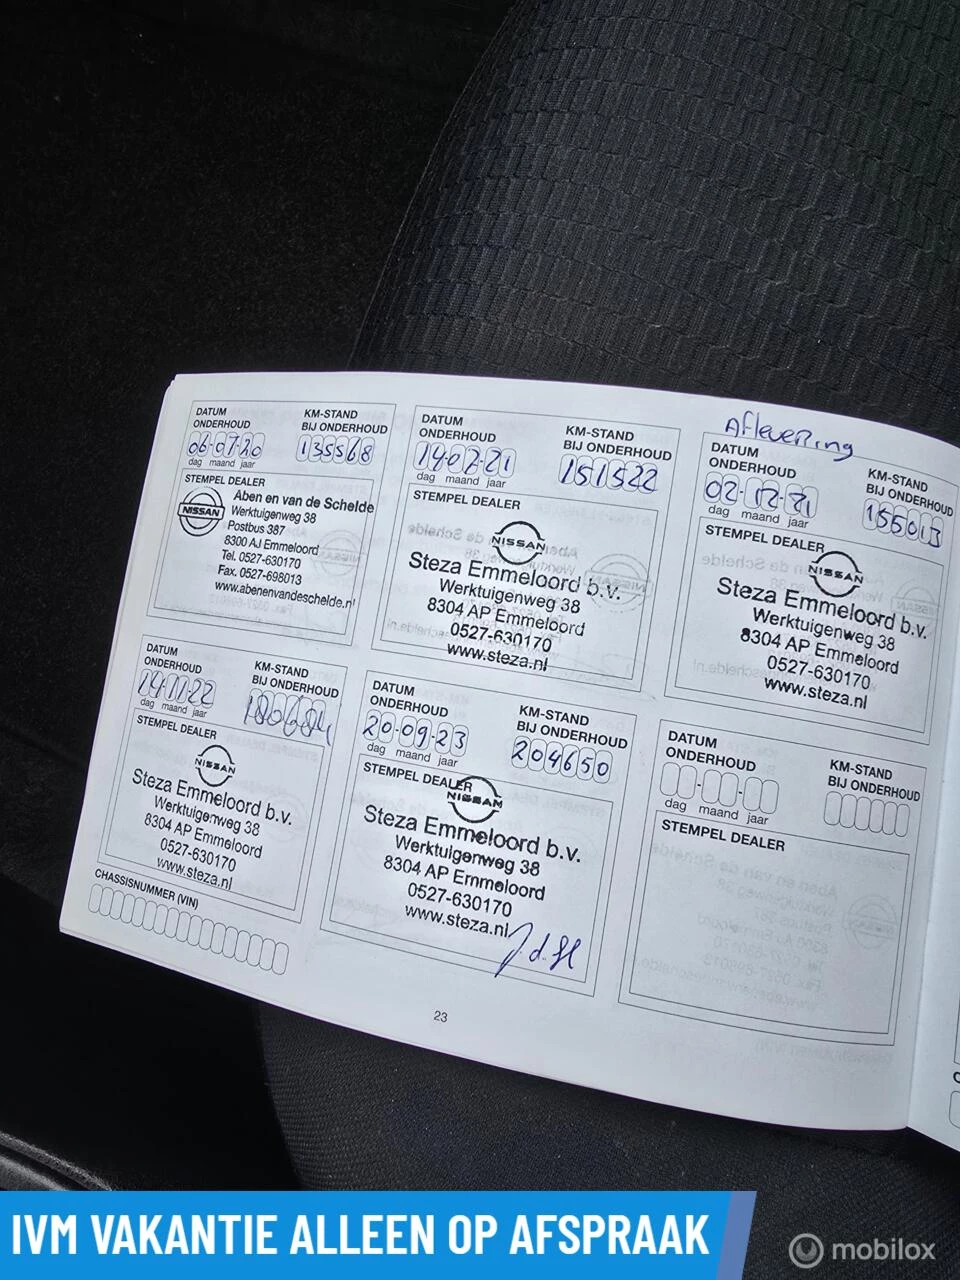 DATUM
ONDERHOUD
06-07-20
dag maand jaar
KM-STAND
BIJ ONDERHOUD
135568
STEMPEL DEALER
NISSAN
Aben en van de Schelde
Werktuigenweg 38
Postbus 387
8300 AJ Emmeloord
Tel. 0527-630170
Fax. 0527-698013
www.abenenvandeschelde.nl
DATUM
ONDERHOUD
14-07-21
dag maand jaar
KM-STAND
BIJ ONDERHOUD
151522
STEMPEL DEALER
NISSAN
Steza Emmeloord b.v.
Werktuigenweg 38
8304 AP Emmeloord
0527-630170
www.steza.nl
Aflevering
DATUM
ONDERHOUD
02-12-21
dag maand jaar
KM-STAND
BIJ ONDERHOUD
155013
STEMPEL DEALER
NISSAN
Steza Emmeloord b.v.
Werktuigenweg 38
8304 AP Emmeloord
0527-630170
www.steza.nl
DATUM
ONDERHOUD
14-11-22
dag maand jaar
KM-STAND
BIJ ONDERHOUD
180684
STEMPEL DEALER
NISSAN
Steza Emmeloord b.v.
Werktuigenweg 38
8304 AP Emmeloord
0527-630170
www.steza.nl
CHASSISNUMMER (VIN)
DATUM
ONDERHOUD
20-09-23
dag maand jaar
KM-STAND
BIJ ONDERHOUD
204650
STEMPEL DEALER
NISSAN
Steza Emmeloord b.v.
Werktuigenweg 38
8304 AP Emmeloord
0527-630170
www.steza.nl
DATUM
ONDERHOUD
dag maand jaar
KM-STAND
BIJ ONDERHOUD
STEMPEL DEALER
23
IVM VAKANTIE ALLEEN OP AFSPRAAK
mobilox